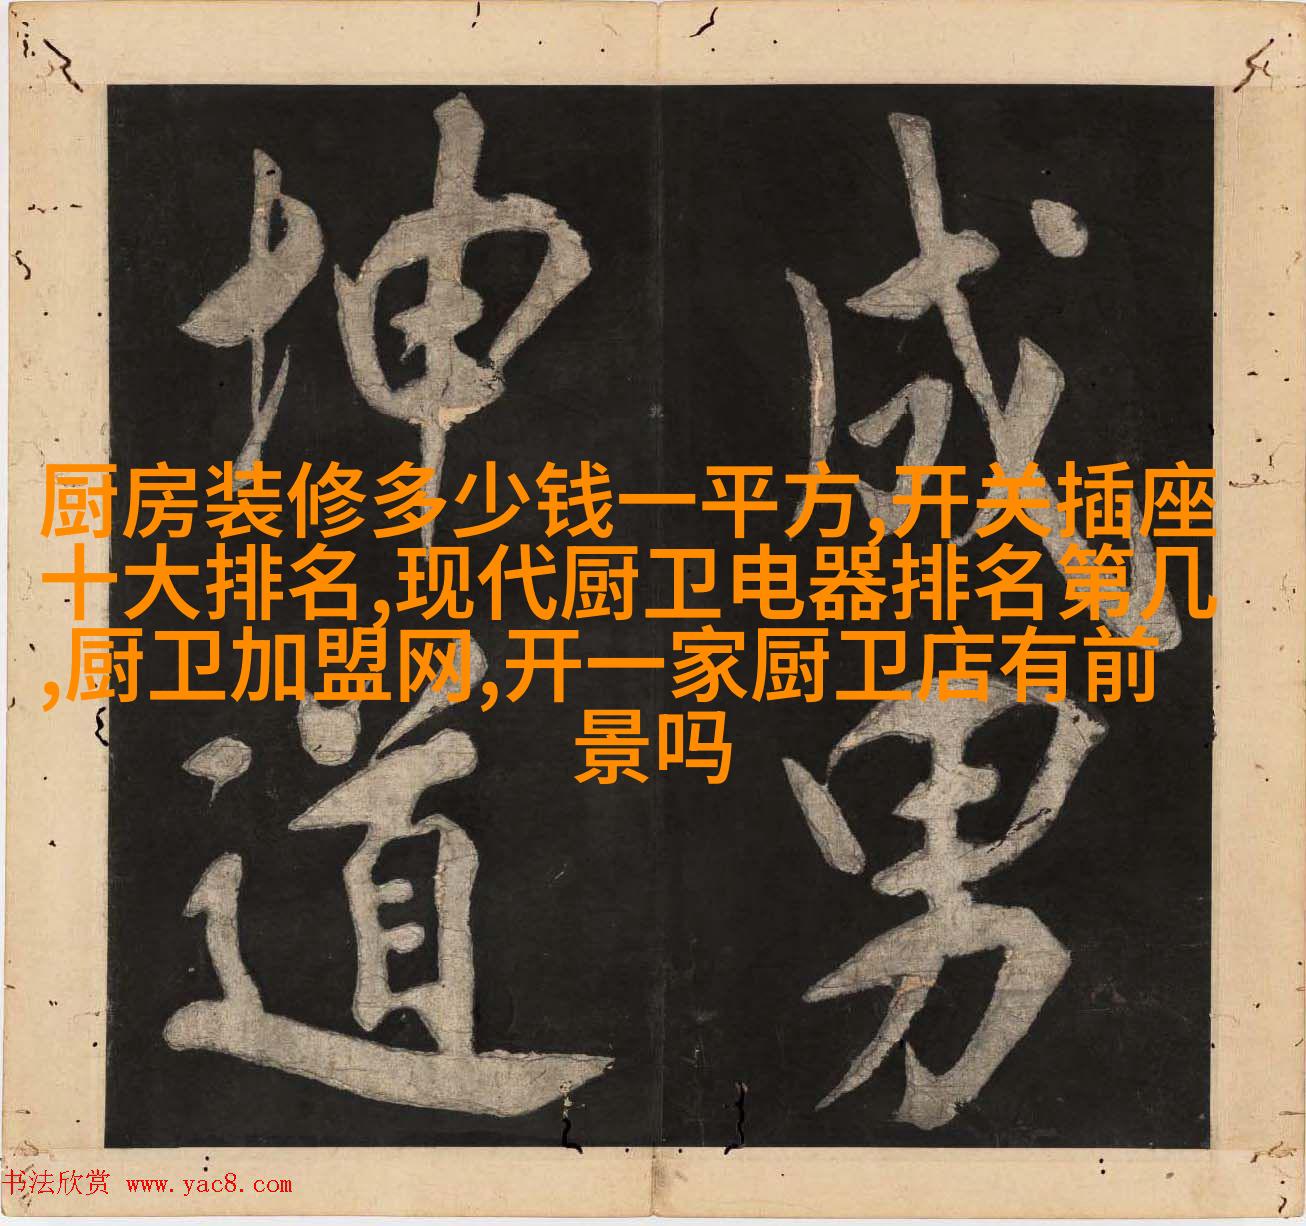 成男
坤道
厨房装修多少钱一平方,开关插座
十大排名,现代厨卫电器排名第几
,厨卫加盟网,开一家厨卫店有前
景吗
书法欣赏 www.yac8.com